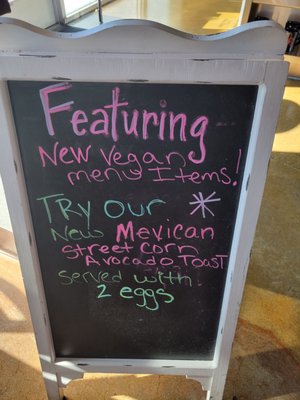 Featuring
New vegan
menu Items!
Try our
New Mexican
Street Corn
Avocado Toast
served with
2 eggs